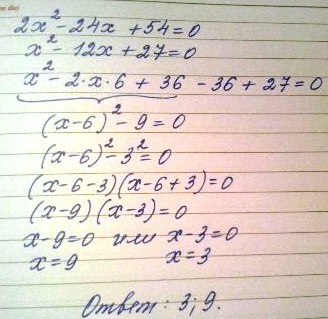 2x² - 24x + 54 = 0
x² - 12x + 27 = 0
x² - 2·x·6 + 36 - 36 + 27 = 0
(x-6)² - 9 = 0
(x-6)² - 3² = 0
(x-6-3)(x-6+3)=0
(x-9)(x-3)=0
x-9=0 или x-3=0
x=9 x=3
Ответ: 3; 9.